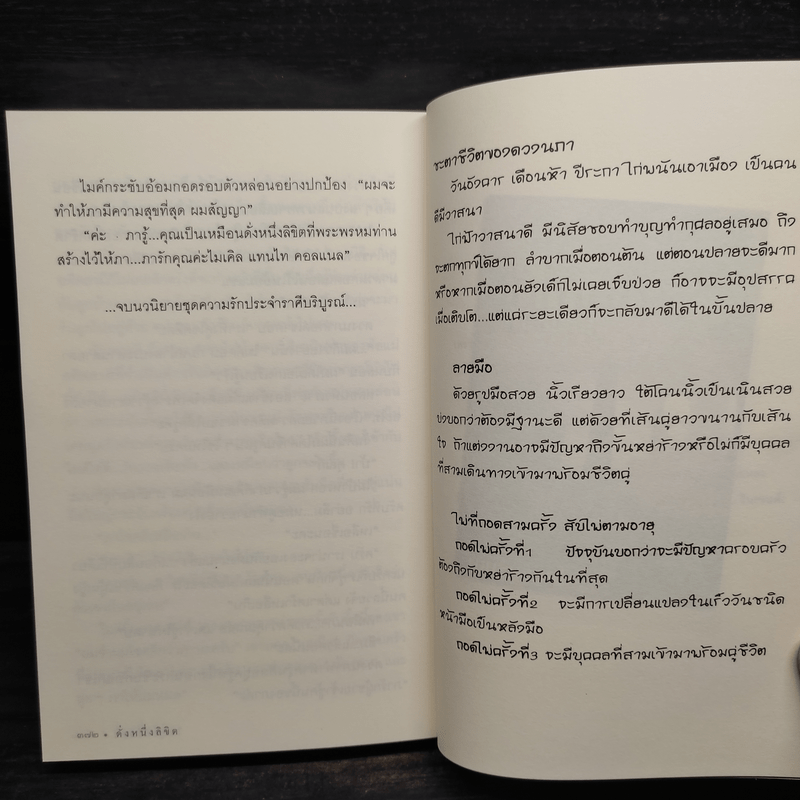 ไมค์กระชับอ้อมกอดรอบตัวหล่อนอย่างปกป้อง “ผมจะ
ทำให้ภามีความสุขที่สุด ผมสัญญา”
“ค่ะ ภารู้...คุณเป็นเหมือนดั่งหนึ่งลิขิตที่พระพรหมท่าน
สร้างไว้ให้ภา...ภารักคุณค่ะไมเคิล แทนไท คอลแนล”
...จบนวนิยายชุดความรักประจำราศีบริบูรณ์...
๓๗๒ • ดั่งหนึ่งลิขิต
ชะตาชีวิตของดวงนภา
วันอังคาร เดือนห้า ปีระกา ไก่พนันเอาเมือง เป็นคน
ดีมีวาสนา
ไก่ฟ้าวาสนาดี มีนิสัยชอบทำบุญทำกุศลอยู่เสมอ ถึง
จะตกทุกข์ได้ยาก ลำบากเมื่อตอนต้น แต่ตอนปลายจะดีมาก
หรือหากเมื่อตอนยังเด็กไม่เคยเจ็บป่วย ก็อาจจะมีอุปสรรค
เมื่อเติบโต...แต่แค่ระยะเดียวก็จะกลับมาดีได้ในบั้นปลาย
ลายมือ
ด้วยรูปมือสวย นิ้วเรียวยาว ใต้โคนนิ้วเป็นเนินสวย
บ่งบอกว่าต้องมีฐานะดี แต่ด้วยที่เส้นคู่ยาวขนานกับเส้น
ใจ ถ้าแต่งงานอาจมีปัญหาถึงขั้นหย่าร้างหรือไม่ก็มีบุคคล
ที่สามเดินทางเข้ามาพร้อมชีวิตคู่
ไพ่ที่ถอดสามครั้ง สับไพ่ตามอายุ
ถอดไพ่ครั้งที่1 ปัจจุบันบอกว่าจะมีปัญหาครอบครัว
ต้องถึงกับหย่าร้างกันในที่สุด
ถอดไพ่ครั้งที่2 จะมีการเปลี่ยนแปลงในเร็ววันชนิด
หน้ามือเป็นหลังมือ
ถอดไพ่ครั้งที่3 จะมีบุคคลที่สามเข้ามาพร้อมคู่ชีวิต